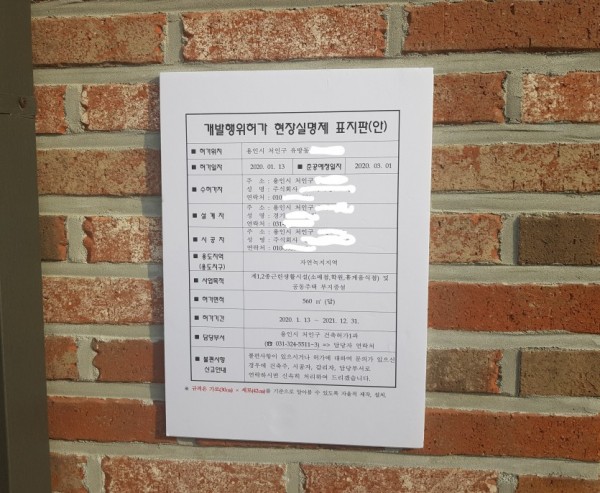 개발행위허가 현장실명제 표지판(안)
■ 허가위치 용인시 처인구 유방동
■ 허가일자 2020. 01. 13 ■ 준공예정일자 2020. 05. 01
■ 수허가자 주 소 : 용인시 처인구
성 명 : 주식회사
연락처 : 010
■ 설 계 자 주 소 : 용인시 처인구
성 명 : 경기
연락처 : 031-
■ 시 공 자 주 소 : 용인시 처인구
성 명 : 주식회사
연락처 : 010-
■ 용도지역 자연녹지지역
(용도지구)
■ 사업목적 제1,2종근린생활시설(소매점,학원,휴게음식점) 및
공동주택 부지증설
■ 허가면적 560 ㎡ (답)
■ 허가기간 2020. 1. 13 ~ 2021. 12. 31.
■ 담당부서 용인시 처인구 건축허가1과
(☎ 031-324-5511~3) => 담당자 연락처
■ 불편사항 불편사항이 있으시거나 허가에 대하여 문의가 있으신
신고안내 경우에 건축주, 시공자, 감리자, 담당부서로
연락하시면 신속히 처리하여 드리겠습니다.
* 규격은 가로(30㎝) × 세로(42㎝)를 기준으로 알아볼 수 있도록 자율적 제작, 설치